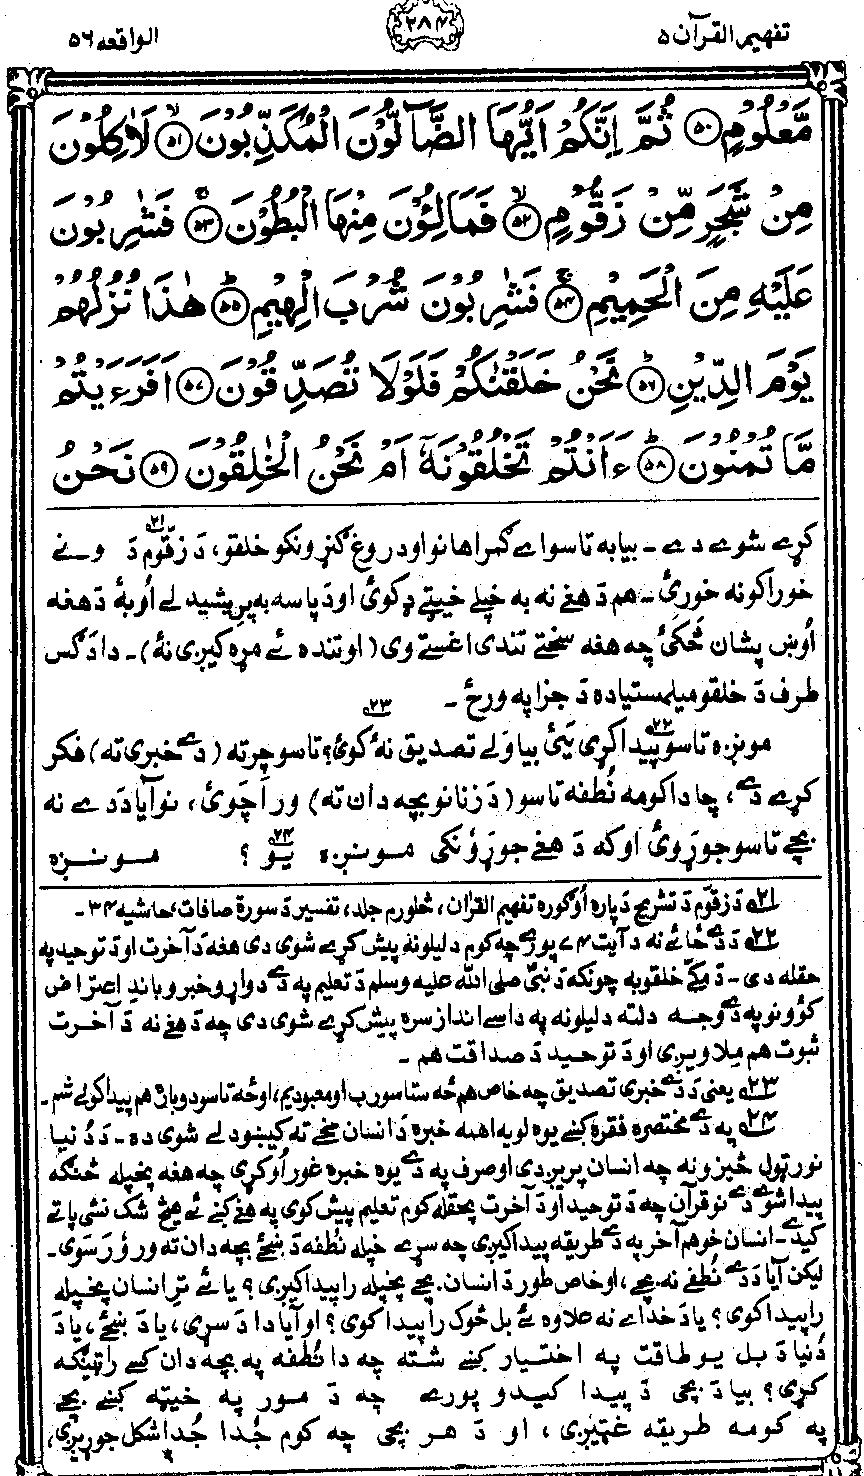 تفهیم القرآن ۵
۲۸۷
الواقعه ۵۶
مَّعْلُوْمٍ ۝۵۰ ثُمَّ اِنَّكُمْ اَيُّهَا الضَّآلُّوْنَ الْمُكَذِّبُوْنَ ۝۵۱ لَاٰكِلُوْنَ
مِنْ شَجَرٍ مِّنْ زَقُّوْمٍ ۝۵۲ فَمَالِـُٔوْنَ مِنْهَا الْبُطُوْنَ ۝۵۳ فَشٰرِبُوْنَ
عَلَيْهِ مِنَ الْحَمِيْمِ ۝۵۴ فَشٰرِبُوْنَ شُرْبَ الْهِيْمِ ۝۵۵ هٰذَا نُزُلُهُمْ
يَوْمَ الدِّيْنِ ۝۵۶ نَحْنُ خَلَقْنٰكُمْ فَلَوْلَا تُصَدِّقُوْنَ ۝۵۷ اَفَرَءَيْتُمْ
مَّا تُمْنُوْنَ ۝۵۸ ءَاَنْتُمْ تَخْلُقُوْنَهٗٓ اَمْ نَحْنُ الْخٰلِقُوْنَ ۝۵۹ نَحْنُ
کړے شوے دے ۔ بیا به تاسو اے گمراهانو او دروغ گنړونکو خلقو، دَ زقّوم ۲۱ دَ ونے
خوراکونه خورئ ۔ هم دَ هغے نه به خپلے خیټے ډکوئ او دَ پاسه به پرے خشید لے اُوبهٔ دَ هغه
اُوښ پشان څکئ چه هغه سختے تندے اغستے وی (او تنده ئے مره کیږی نهٔ) ۔ دا دَ کس
طرف دَ خلقو میلمستیا ده دَ جزا په ورځ ۔
مونږه تاسو پیدا کړی یئ ۲۲ بیا ولے تصدیق نهٔ کوئ؟ ۲۳ تاسو چرته (دے خبرے ته) فکر
کړے دے، چا دا کومه نُطفه تاسو (دَ زنانو بچه دان ته) ور اَچوئ، نو آیا دَ دے نه
بچے تاسو جوړوئ او که دَ هغے جوړونکی مونږه یو ۲۴ ؟ مونږه
۲۱ دَ زقوم دَ تشریح دَ پاره اُوگوره تفهیم القرآن، څلورم جلد، تفسیر دَ سورة صافات، حاشیه ۳۴ ۔
۲۲ دَ دے ځائے نه دَ آیت ۷۴ پورے چه کوم دلیلونه پیش کړے شوی دی هغه دَ آخرت او دَ توحید په
حقله دی ۔ دَ مکّے خلقو به چونکه دَ نبی صلی الله علیه وسلم دَ تعلیم په دے دواړو خبرو باندِ اعتراض
کؤو نو په دے وجه دلته دلیلونه په داسے انداز سره پیش کړے شوی دی چه دَ هغے نه دَ آخرت
ثبوت هم ملاویږی او دَ توحید دَ صداقت هم ۔
۲۳ یعنی دَ دے خبرے تصدیق چه خاص هم څه ستاسو رب او معبود یم، او څه تاسو دوباره هم پیدا کولے شم ۔
۲۴ په دے مختصره فقره کښے یوه لویه اهمه خبره دَ انسان مخے ته کیښودلے شوی ده ۔ دَ دُنیا
نور ټول څیزونه چه انسان پریږدی او صرف په دے یوه خبره غور اُوکړی چه هغه پخپله څنگه
پیدا شوے دے نو قرآن چه دَ توحید او دَ آخرت په حقله کوم تعلیم پیش کوی په هغے کښے ئے هیڅ شک نشی پاتے
کیدے ۔ انسان خو هم آخر په دے طریقه پیدا کیږی چه سړے خپله نُطفه دَ ښځے بچه دان ته ورؤرسوی ۔
لیکن آیا دَ دے نُطفے نه بچے، او خاص طور دَ انسان بچے پخپله راپیدا کیږی؟ یا ئے تر انسان پخپله
راپیدا کوی؟ یا دَ خدائے نه علاوه ئے بل څوک راپیدا کوی؟ او آیا دا دَ سړی، یا دَ ښځے، یا دَ
دُنیا دَ بل یو طاقت په اختیار کښے شته چه دا نُطفه په بچه دان کښے راټینگه
کړی؟ بیا دَ بچی دَ پیدا کیدو پورے چه دَ مور په خیټه کښے بچے
په کومه طریقه غټیږی، او دَ هر بچی چه کوم جُدا جُدا شکل جوړیږی،